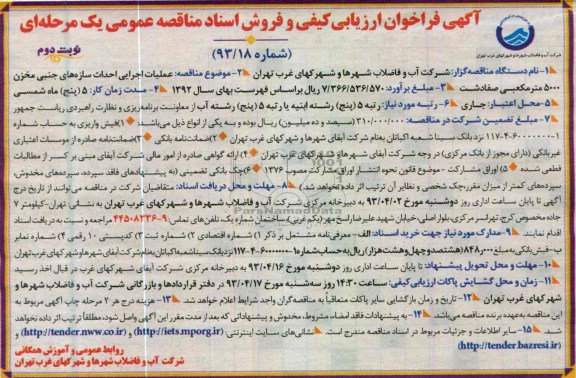 آگهی فراخوان ارزیابی کیفی و فروش اسناد مناقصه عمومی یک مرحله‌ای
(شماره ۹۳/۱۸)
نوبت دوم
شرکت آب و فاضلاب شهرها و شهرکهای غرب تهران
۱- نام دستگاه مناقصه‌گزار: شرکت آب و فاضلاب شهرها و شهرکهای غرب تهران ۲- موضوع مناقصه: عملیات اجرایی احداث سازه‌های جنبی مخزن
۵۰۰۰ مترمکعبی صفادشت ۳- مبلغ برآورد: ۷/۳۶۶/۵۳۶/۵۷۰ ریال براساس فهرست بهای سال ۱۳۹۲ ۴- مدت زمان کار: ۵ (پنج) ماه شمسی
۵- محل اعتبار: جاری ۶- رتبه مورد نیاز: رتبه ۵ (پنج) رشته ابنیه یا رتبه ۵ (پنج) رشته آب از معاونت برنامه‌ریزی و نظارت راهبردی ریاست جمهور
۷- مبلغ تضمین شرکت در مناقصه: ۳۱۰/۰۰۰/۰۰۰ (سیصد و ده میلیون) ریال بوده و به یکی از انواع ذیل می‌باشد: ۱) فیش واریزی به حساب شماره
نزد بانک سینا شعبه اکباتان به‌نام شرکت آبفای شهرها و شهرکهای غرب تهران ۲) ضمانت‌نامه بانکی ۳) ضمانت‌نامه صادره از موسسات اعتباری
غیربانکی (دارای مجوز از بانک مرکزی) در وجه شرکت آبفای شهرها و شهرکهای غرب تهران ۴) ارائه گواهی صادره از امور مالی شرکت آبفای مبنی بر کسر از مطالبات
قطعی شده ۵) اوراق مشارکت - موضوع قانون نحوه انتشار اوراق مشارکت مصوب ۱۳۷۶ ۶) چک بانکی تضمینی (به پیشنهادهای فاقد سپرده، سپرده‌های مخدوش،
سپرده‌های کمتر از میزان مقرر، چک شخصی و نظایر آن ترتیب اثر داده نخواهد شد.) ۸- مهلت و محل دریافت اسناد: متقاضیان شرکت در مناقصه می‌توانند از تاریخ درج
آگهی تا پایان ساعت اداری روز دوشنبه مورخ ۹۳/۰۴/۰۲ به دبیرخانه مرکزی شرکت آب و فاضلاب شهرها و شهرکهای غرب تهران به نشانی تهران- کیلومتر ۷
جاده مخصوص کرج، تهرانسر مرکزی، بلوار اصلی، خیابان شهید علیرضا راسخ مهر (یکم غربی)، ساختمان شماره یک، تلفن‌های تماس ۹-۴۴۵۰۸۳۳۶ مراجعه و نسبت به دریافت اسناد
اقدام نمایند. ۹- مدارک مورد نیاز جهت خرید اسناد: الف- معرفی‌نامه مشتمل بر ذکر ۱) شماره اقتصادی ۲) شماره ثبت ۳) کدپستی ۱۰ رقمی ۴) شماره نمابر
ب- فیش بانکی به مبلغ ۸۴۸,۰۰۰ (هشتصد و چهل و هشت هزار) ریال به حساب شماره نزد بانک سینا شعبه اکباتان به‌نام شرکت آبفای شهرها و شهرکهای غرب تهران
۱۰- مهلت و محل تحویل پیشنهادات: تا پایان ساعت اداری روز دوشنبه مورخ ۹۳/۰۴/۱۶ به دبیرخانه مرکزی شرکت آبفای شهرکهای غرب در قبال اخذ رسید
۱۱- زمان و محل گشایش پاکات ارزیابی کیفی: ساعت ۱۴:۳۰ روز سه‌شنبه مورخ ۹۳/۰۴/۱۷ در دفتر قراردادها و بازرگانی شرکت آب و فاضلاب شهرها و
شهرکهای غرب تهران ۱۲- تاریخ و زمان بازگشایی سایر پاکات متعاقباً به مناقصه‌گران واجد شرایط اعلام خواهد شد. ۱۳- هزینه درج هر ۲ مرحله چاپ آگهی مربوط به
این مناقصه به‌عهده برنده مناقصه می‌باشد. ۱۴- به پیشنهادات فاقد امضاء، مشروط، مخدوش و پیشنهاداتی که بعد از مدت مقرر این آگهی واصل شود، مطلقاً ترتیب اثر داده نخواهد
شد. ۱۵- سایر اطلاعات و جزئیات مربوط در اسناد مناقصه مندرج است. نشانی‌های سایت اینترنتی: (http://iets.mporg.ir) و (http://tender.nww.co.ir) و
(http://tender.bazresi.ir)
روابط عمومی و آموزش همگانی
شرکت آب و فاضلاب شهرها و شهرکهای غرب تهران